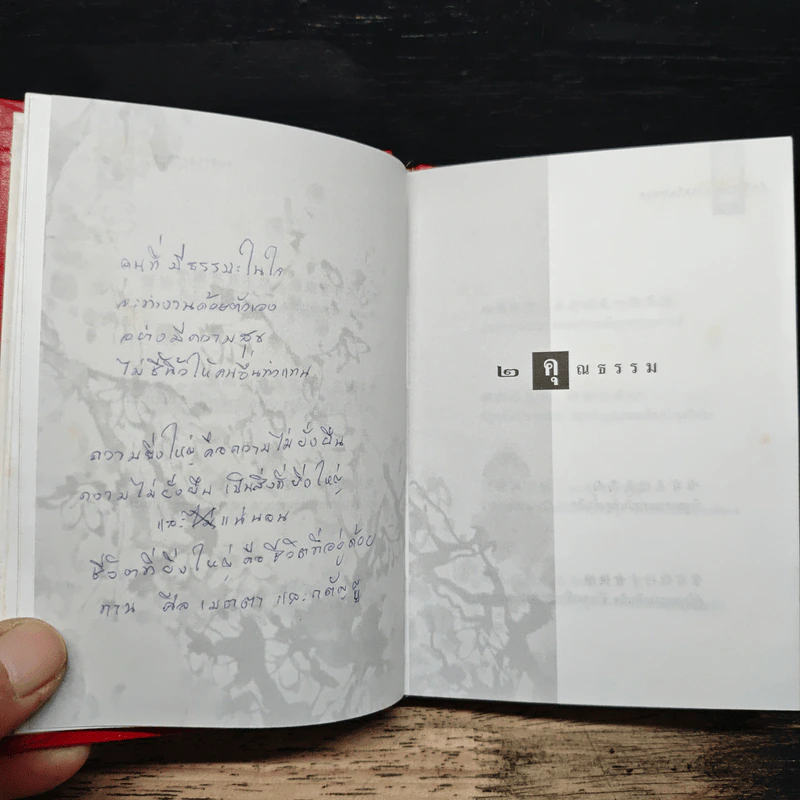 คนที่ มีธรรมะในใจ
จะทำงานด้วยตัวเอง
อย่างมีความสุข
ไม่ชี้นิ้วให้คนอื่นทำแทน
ความยิ่งใหญ่ คือความไม่ยั่งยืน
ความไม่ยั่งยืน เป็นสิ่งที่ยิ่งใหญ่
และ แน่นอน
ชีวิตที่ยิ่งใหญ่ คือ ชีวิตที่อยู่ด้วย
ทาน ศีล เมตตา และกตัญญู
๒ คุณธรรม